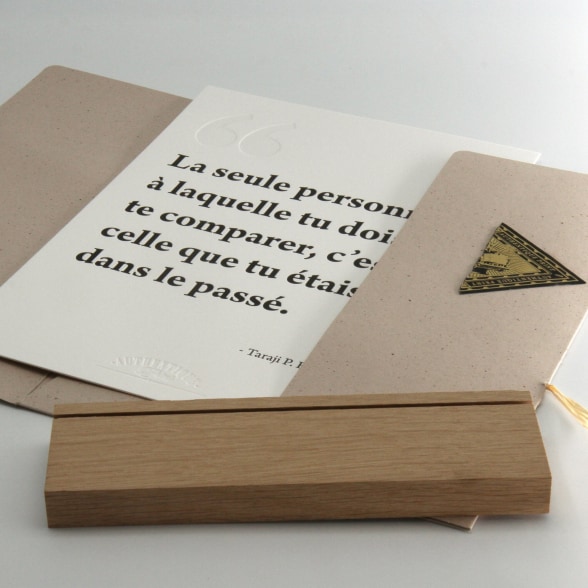 “
La seule personn
à laquelle tu dois
te comparer, c'es
celle que tu étais
dans le passé.
- Taraji P.